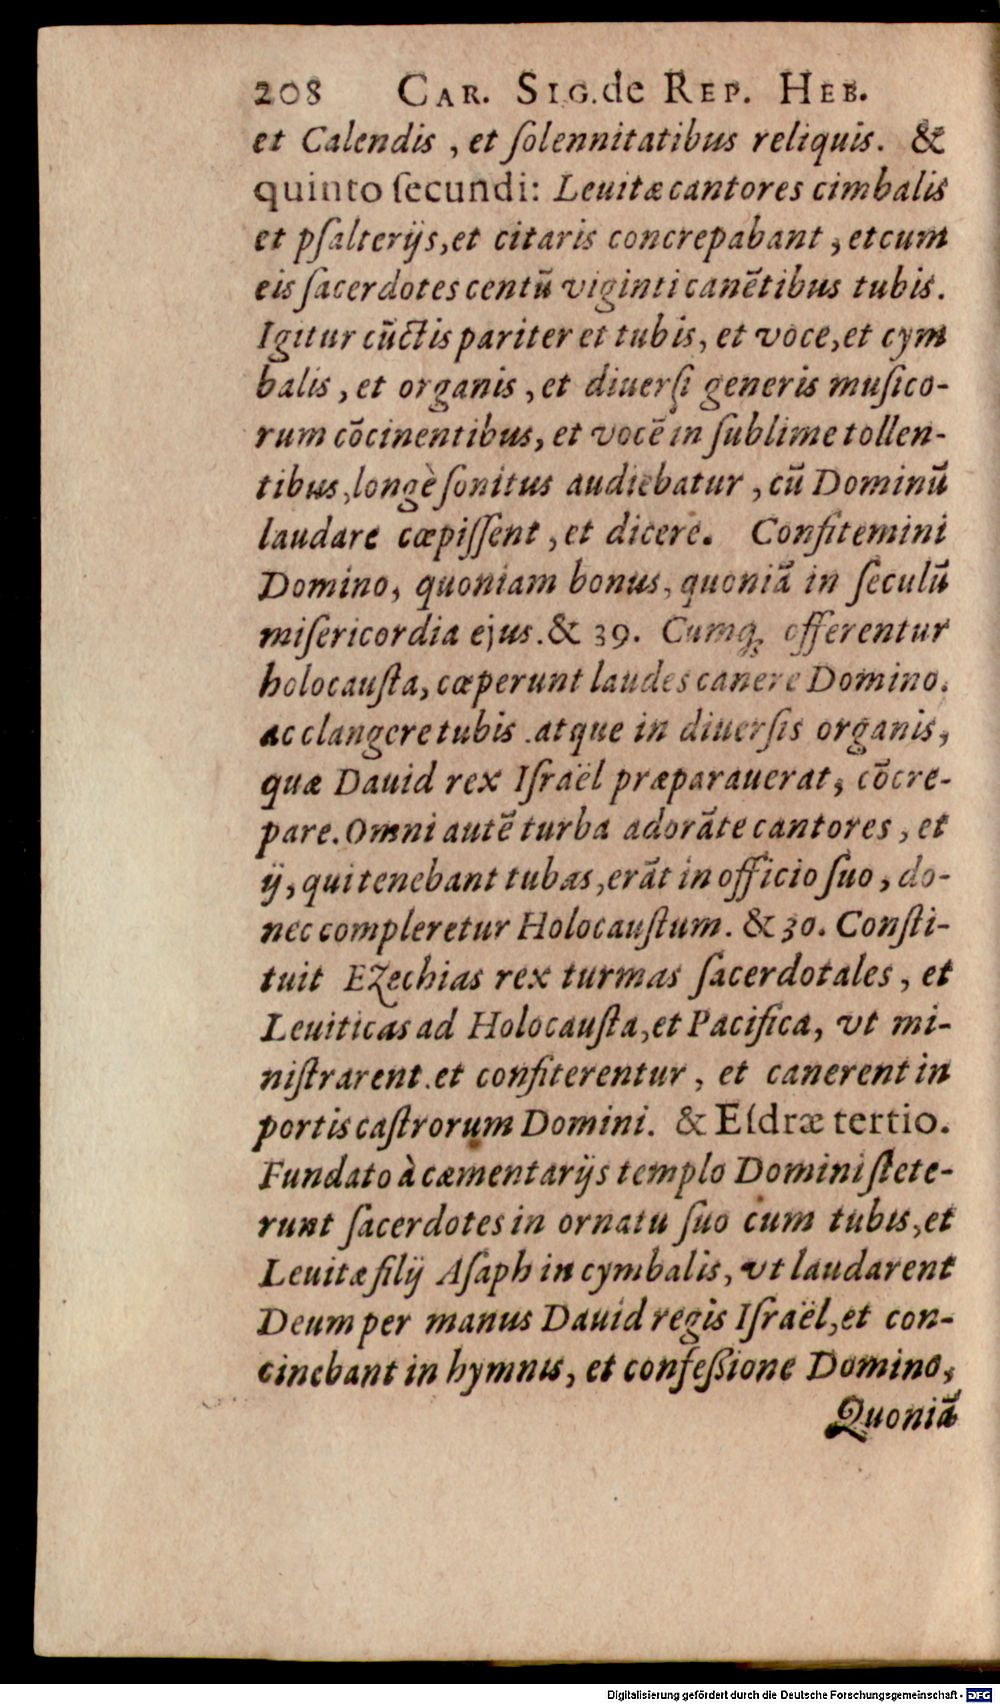 208 CAR. SIG. de REP. HEB.
et Calendis, et ſolennitatibus reliquis. &
quinto ſecundi: Leuitæ cantores cimbalis
et pſalterijs, et citaris concrepabant, et cum
eis ſacerdotes centū viginti canētibus tubis.
Igitur cūctis pariter et tubis, et voce, et cym
balis, et organis, et diuerſi generis muſico-
rum cōcinentibus, et vocē in ſublime tollen-
tibus, longè ſonitus audiebatur, cū Dominū
laudare cœpiſſent, et dicere. Confitemini
Domino, quoniam bonus, quoniā in ſeculū
miſericordia ejus. & 39. Cumq; offerentur
holocauſta, cœperunt laudes canere Domino.
ac clangere tubis. atque in diuerſis organis,
quæ Dauid rex Iſraël præparauerat, cōcre-
pare. Omni autē turba adorāte cantores, et
ij, qui tenebant tubas, erāt in officio ſuo, do-
nec compleretur Holocauſtum. & 30. Conſti-
tuit Ezechias rex turmas ſacerdotales, et
Leuiticas ad Holocauſta, et Pacifica, vt mi-
niſtrarent. et confiterentur, et canerent in
portis caſtrorum Domini. & Eſdræ tertio.
Fundato à cæmentarijs templo Domini ſtete-
runt ſacerdotes in ornatu ſuo cum tubis, et
Leuitæ filij Aſaph in cymbalis, vt laudarent
Deum per manus Dauid regis Iſraël, et con-
cinebant in hymnis, et confeßione Domino,
Quoniā
Digitalisierung gefördert durch die Deutsche Forschungsgemeinschaft - DFG